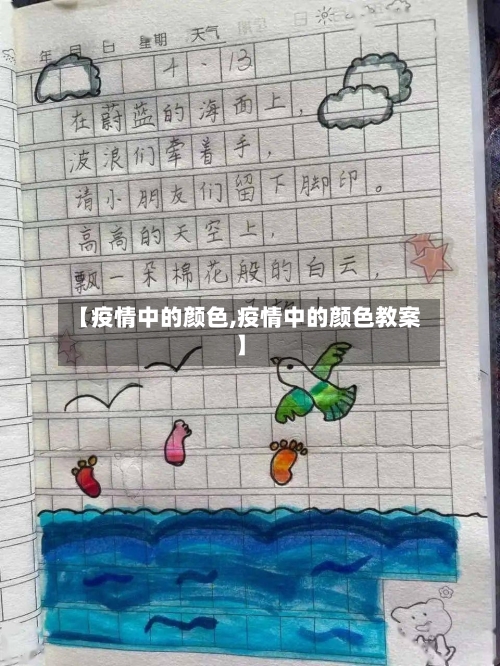 年 月 日 星期 天气
4.13
在蔚蓝的海面上，
波浪们牵着手，
请小朋友们留下脚印。
高高的天空上，
飘一朵棉花般的白云，
【疫情中的颜色,疫情中的颜色教案
】